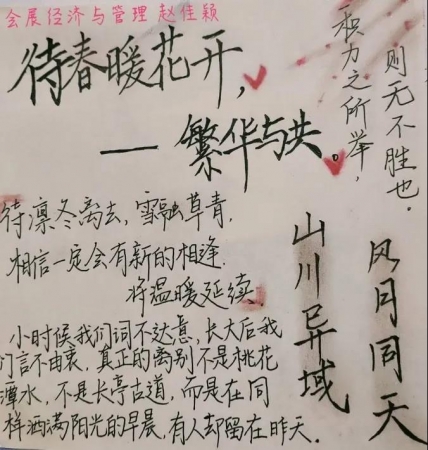 会展经济与管理 赵佳颖
待春暖花开，
— 繁华与共。
积力之所举，
则无不胜也.
待凛冬离去，雪融草青.
相信一定会有新的相逢.
将温暖延续.
山川异域
风月同天
小时候我们词不达意，长大后我
们言不由衷，真正的离别不是桃花
潭水，不是长亭古道，而是在同
样洒满阳光的早晨，有人却留在昨天.